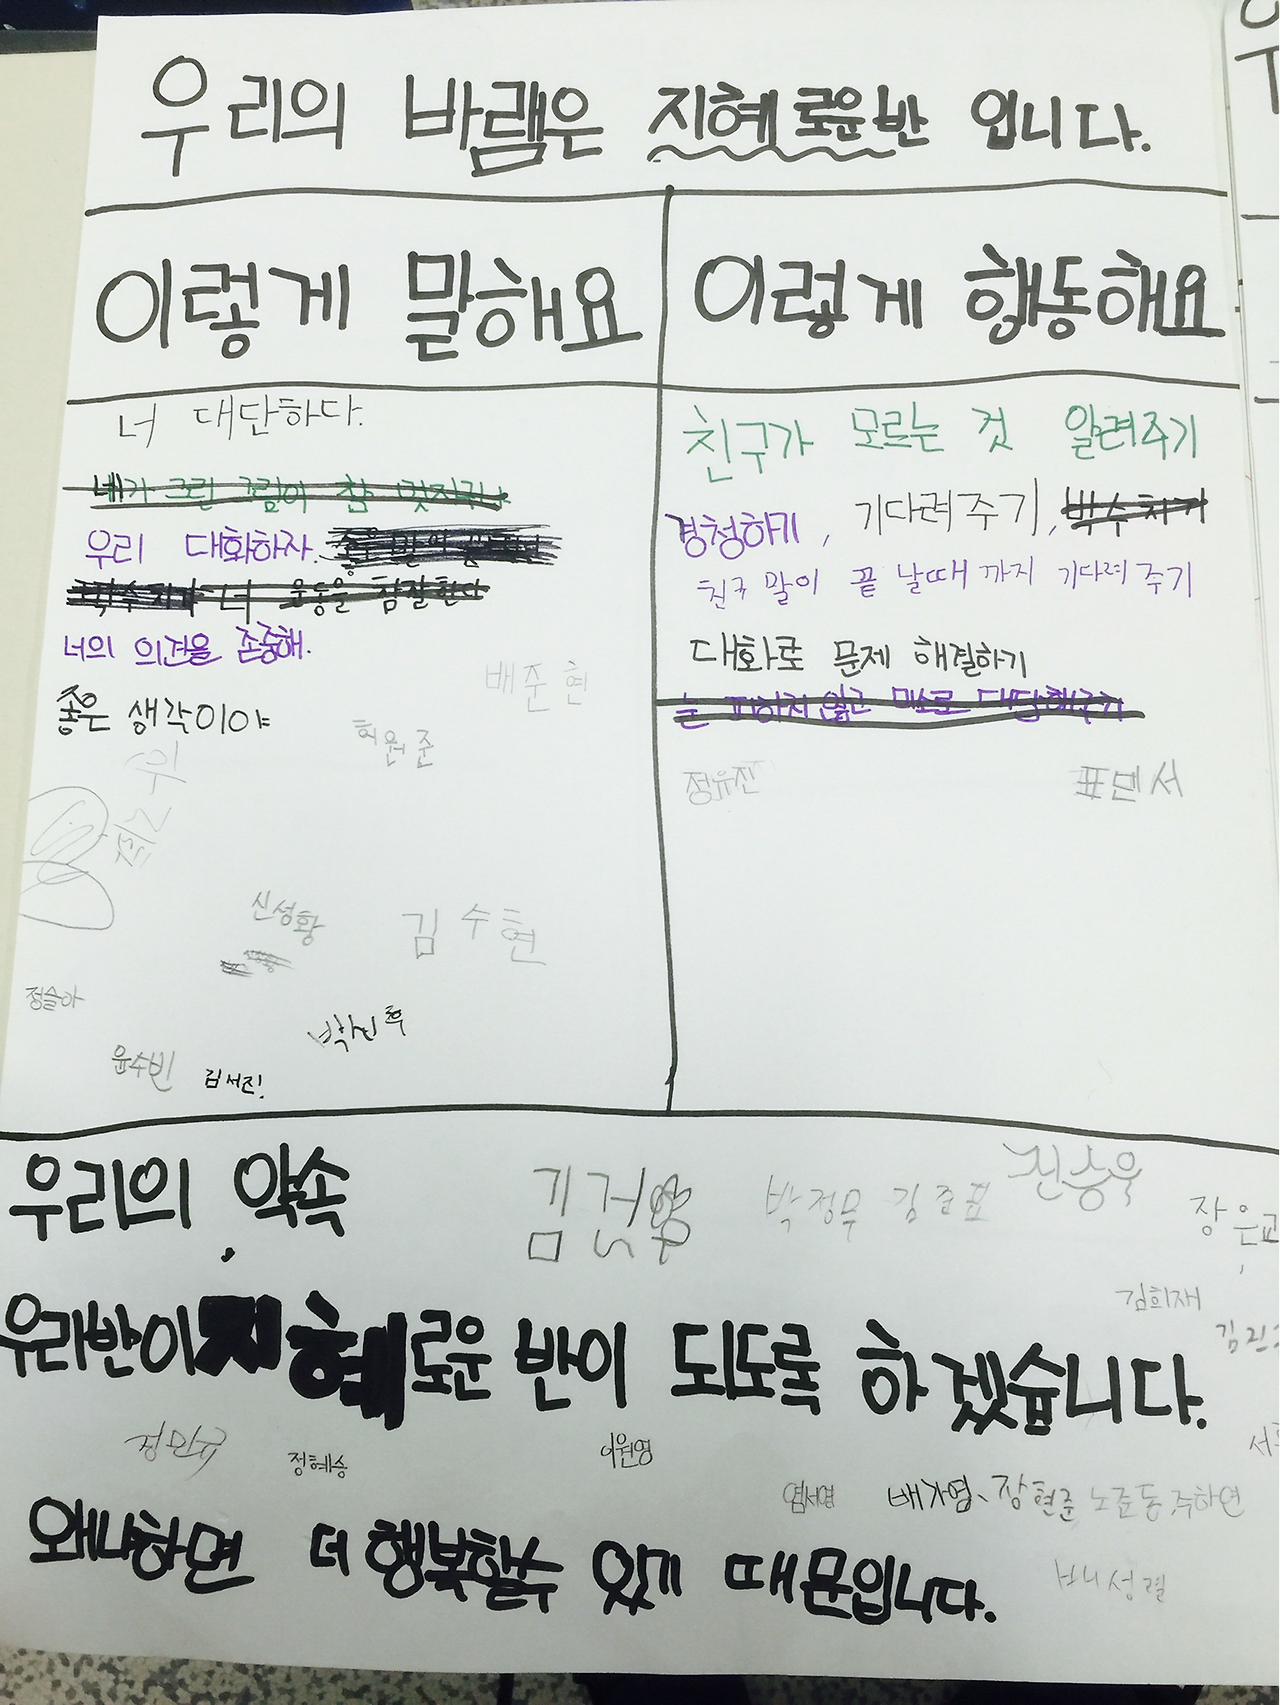 우리의 바램은 지혜로운반 입니다.
이렇게 말해요
너 대단하다.
네가 그린 그림이 참 멋지구나
우리 대화하자.
너 운동을 참 잘한다
너의 의견을 존중해.
좋은 생각이야
배준현
허원준
신성황
김수현
정슬아
박신후
윤수빈 김서진!
이렇게 행동해요
친구가 모르는 것 알려주기
경청하기, 기다려주기, 박수치기
친구 말이 끝 날때 까지 기다려 주기
대화로 문제 해결하기
눈 피하지 않고 미소로 대답해주기
정유진 표민서
우리의 약속
박정무 김준표 진승욱
장은교
김희재
우리반이 지혜로운 반이 되도록 하겠습니다.
정민규 정혜승 이원영
염서영 배가영、장현준 노준동 주하연
왜냐하면 더 행복할수 있기 때문입니다.